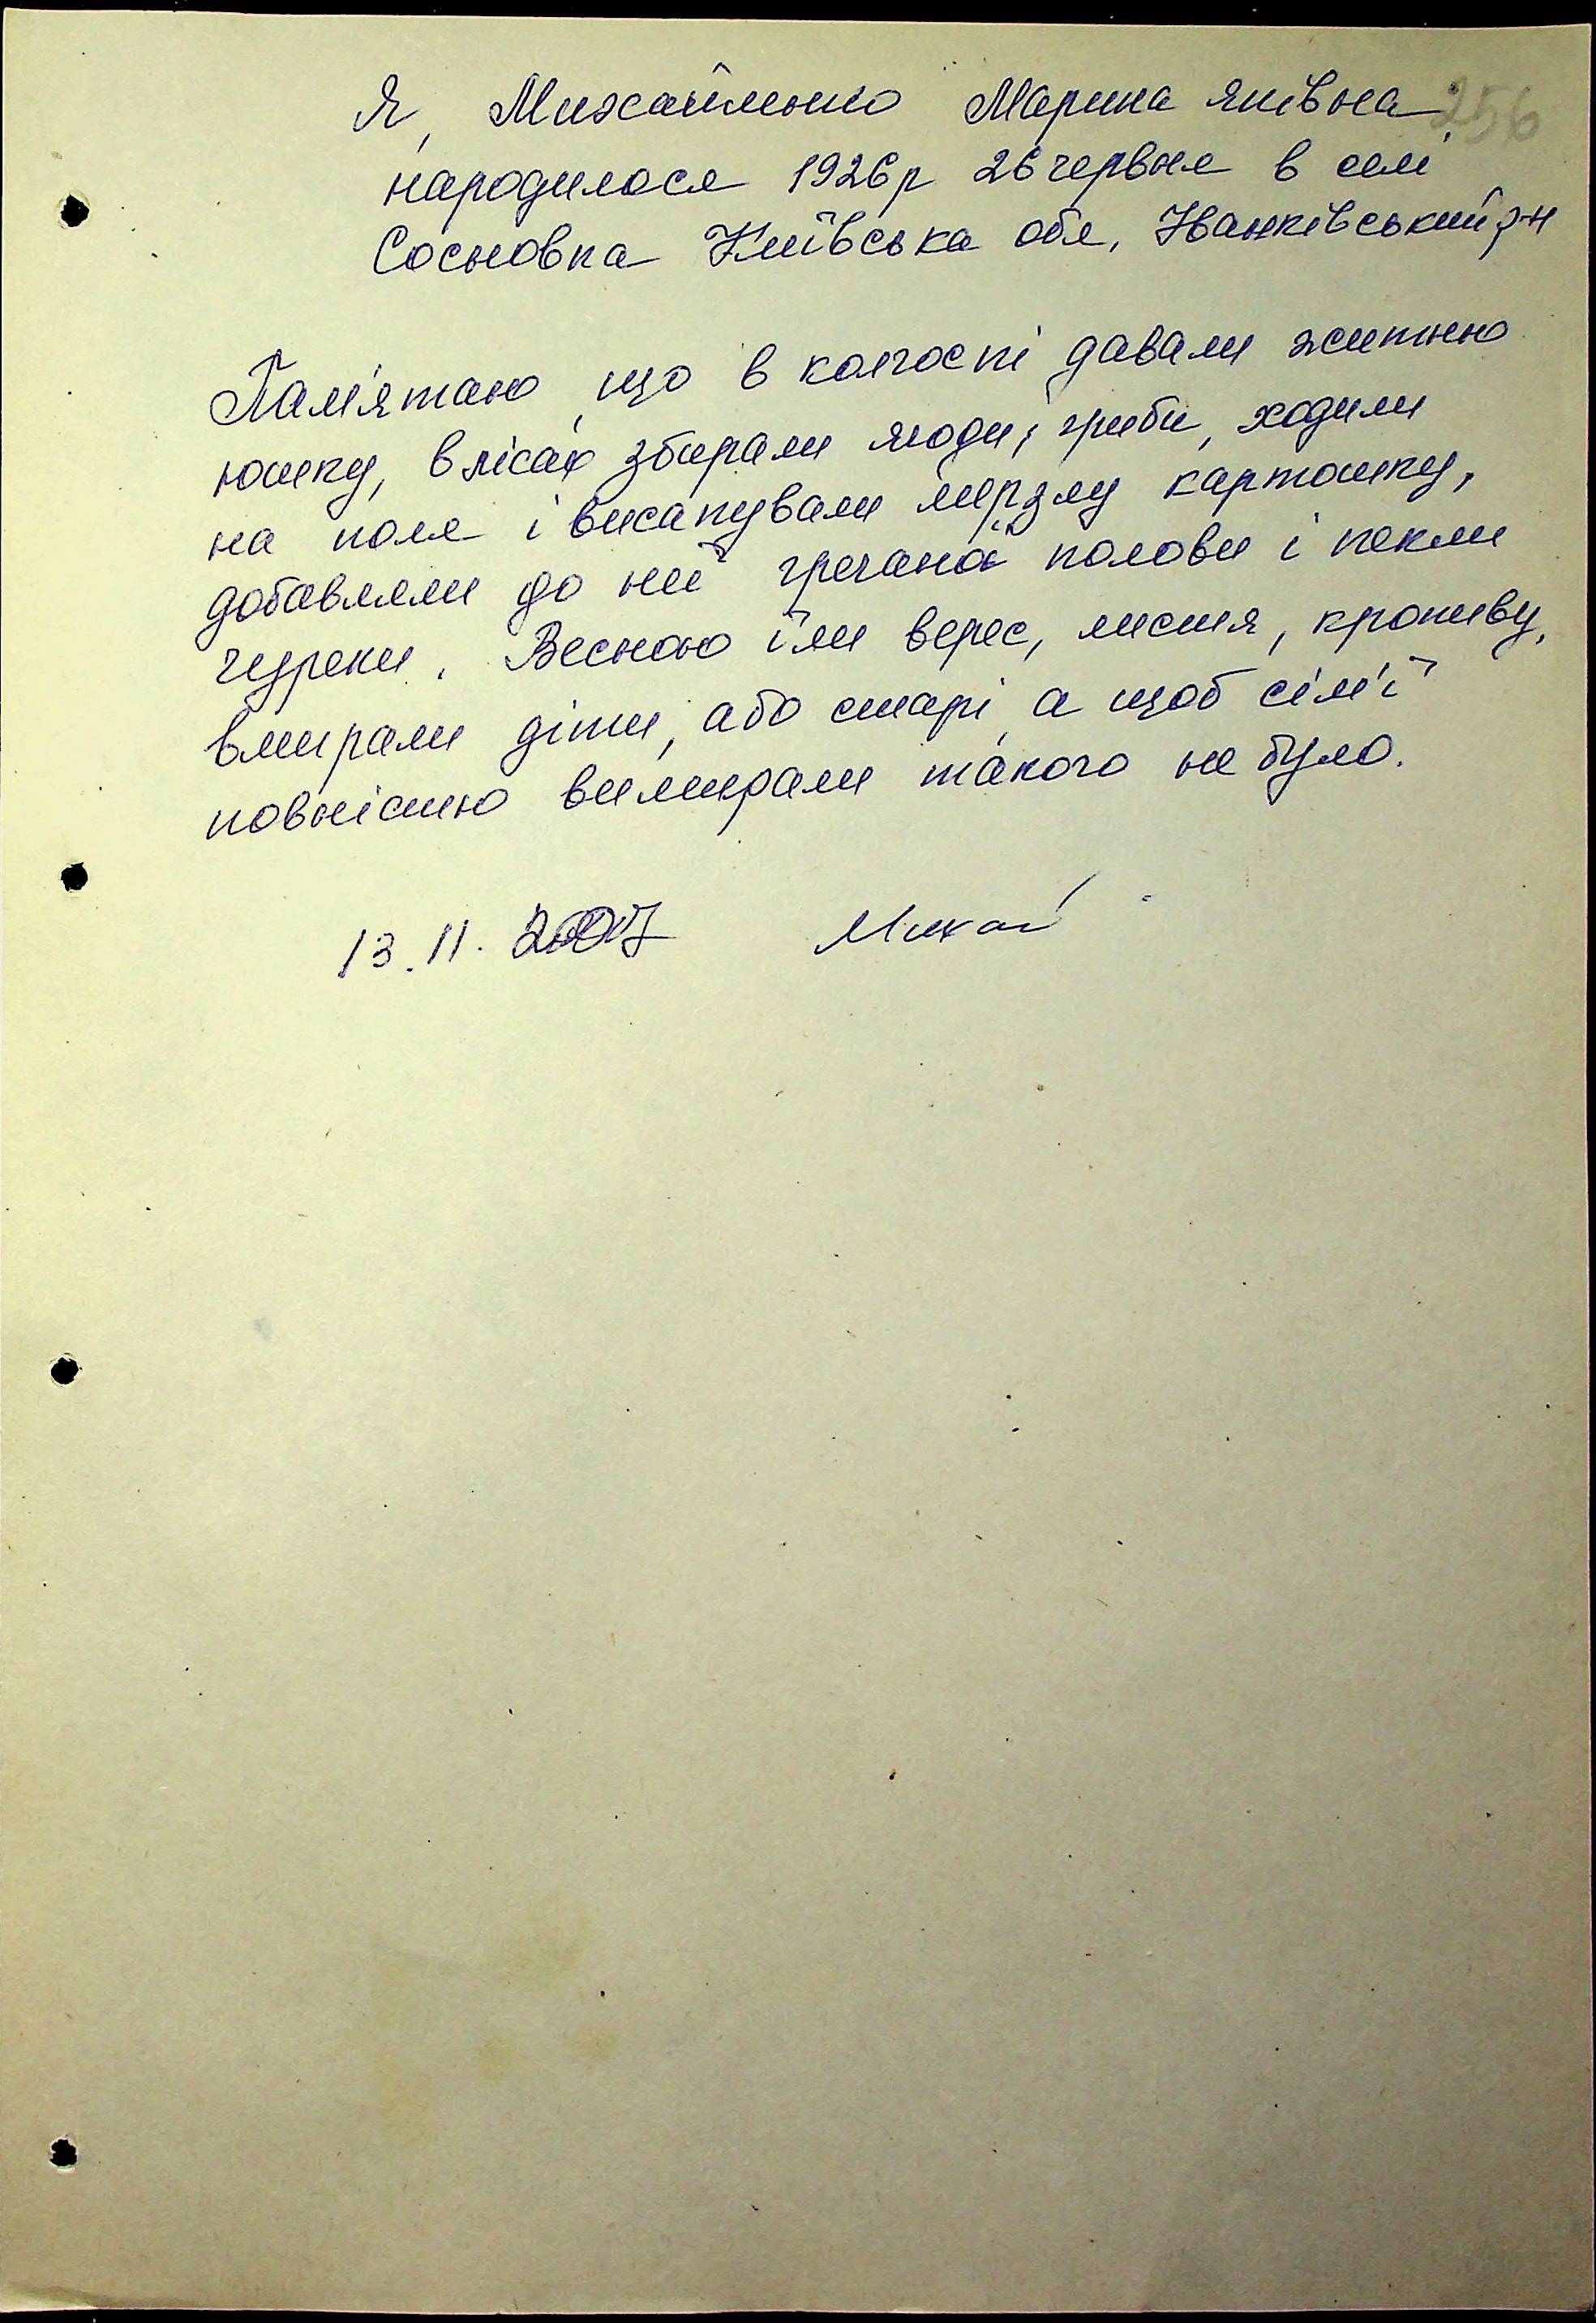 256
Я, Михайленко Марина Яківна,
народилася 1926р 26 червня в селі
Сосновка Київська обл, Іванківський р-н
Пам'ятаю, що в колгоспі давали житню
юшку, в лісах збирали ягоди, гриби, ходили
на поля і висапували мерзлу картошку,
добавляли до неї гречаної полови і пекли
чуреки. Весною їли верес, листя, кропиву,
вмирали діти, або старі, а щоб сім'ї
повністю вимирали такого не було.
13.11.2007 Михай